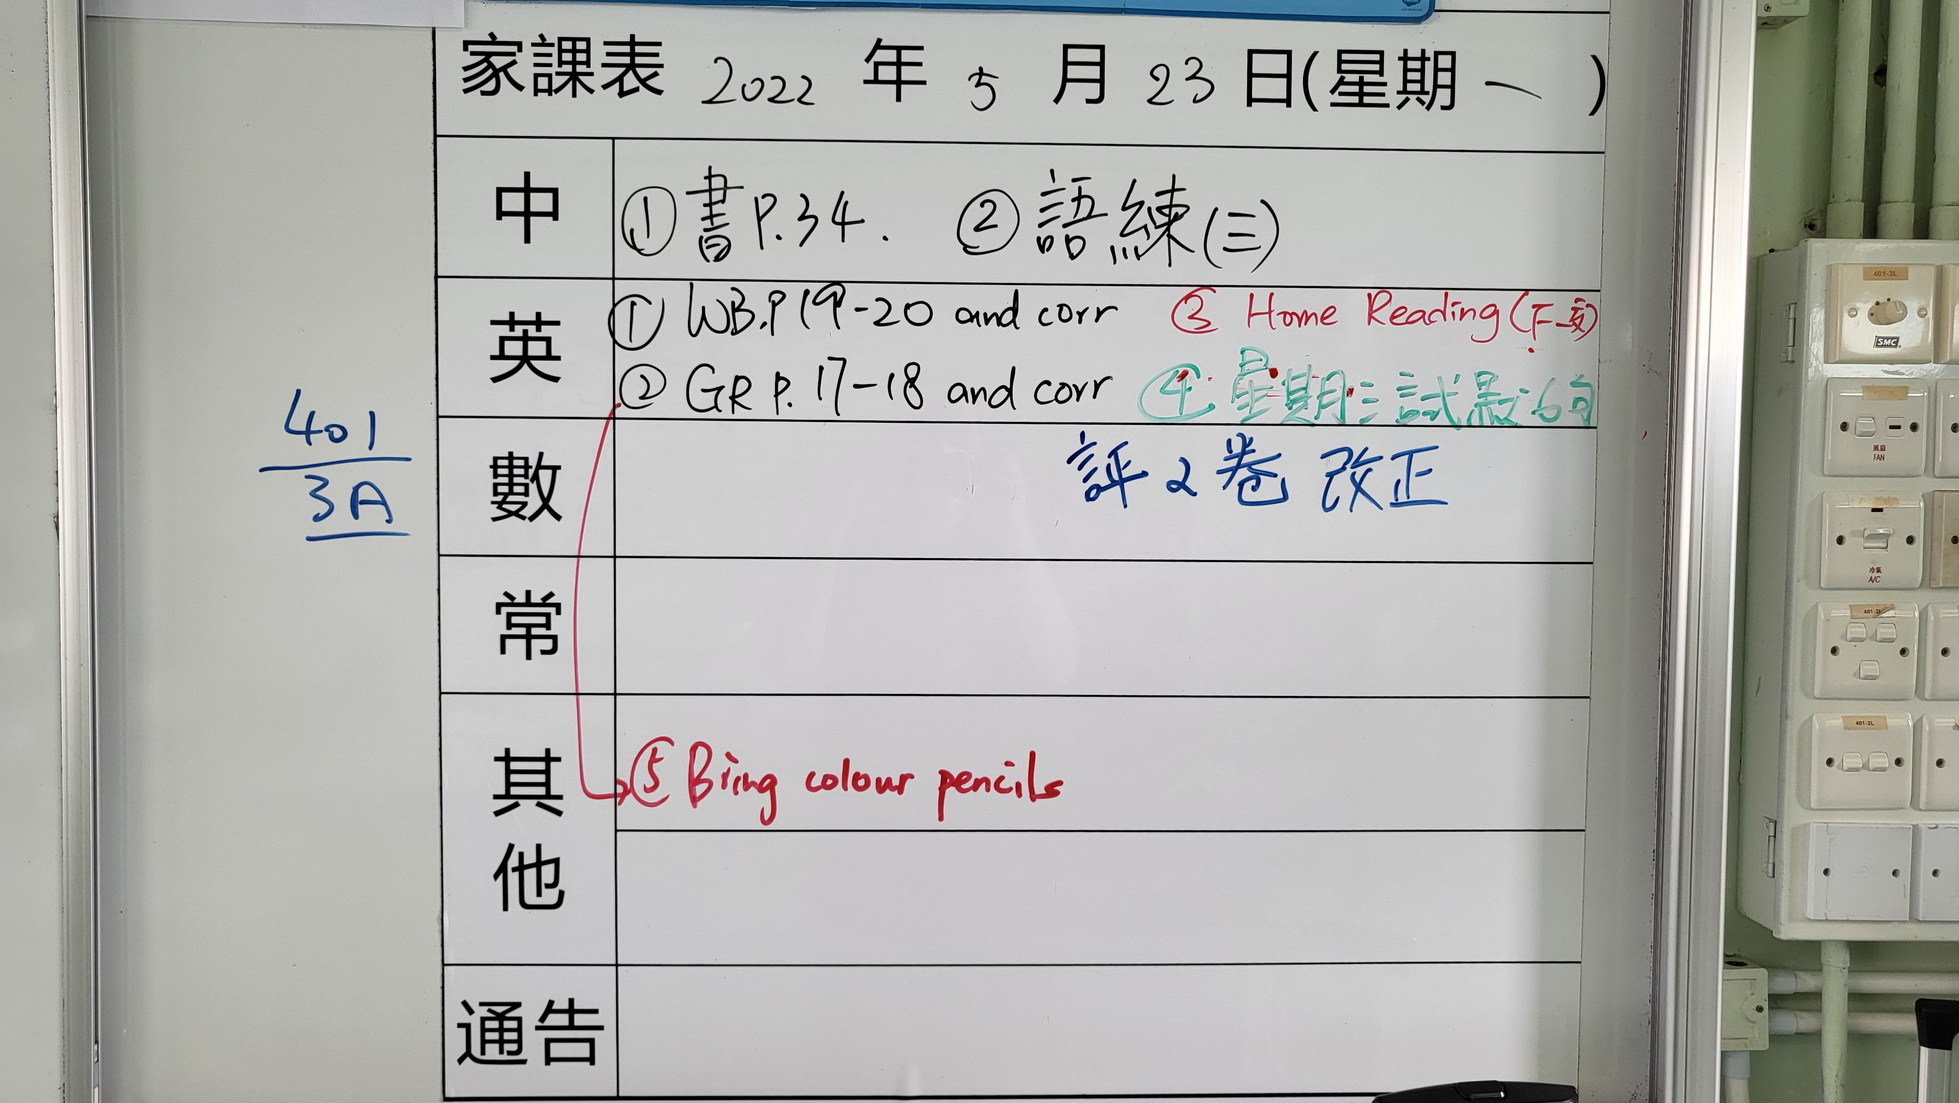 家課表 2022 年 5 月 23 日(星期一)
中 ①書P.34. ②語練(三)
英 ① WB.P19-20 and corr ③ Home Reading(下一頁)
② GR P. 17-18 and corr ④ 星期三試默
數 評2卷 改正
常
其他 ⑤ Bring colour pencils
通告
401
3A
401-2L
SMC
風扇
FAN
冷氣
A/C
401-2L